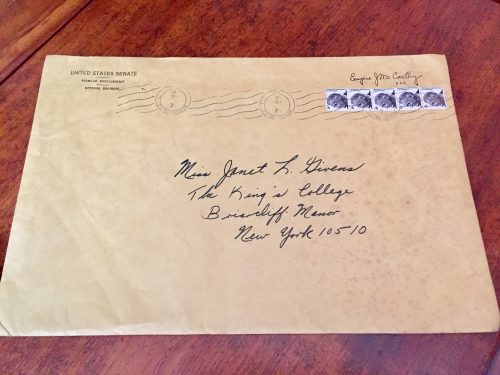 UNITED STATES SENATE
PUBLIC DOCUMENT
OFFICIAL BUSINESS
Eugene J McCarthy
U.S.S.
Miss Janet L. Givens
The King's College
Briarcliff Manor
New York 10510